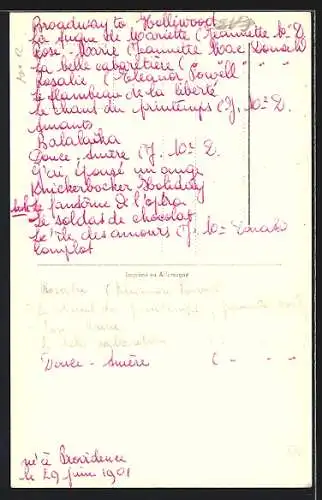 Broadway to Hollywood
La fugue de Mariette (Jeannette Mc D.
Rose-Marie (Jeannette Mac Donald
La belle cabaretière (
Rosalie (Eleanor Powell
Le flambeau de la liberté
Le chant du printemps (J. Mc D.
Amants
Balalaïka
Douce-Amère (J. Mc D.
J'ai épousé un ange
Knickerbocker Holiday
Le fantôme de l'opéra
Le soldat de chocolat
Le île des amours (J. Mc Donald
Complot
Imprimé en Allemagne
Rosalie (
Le chant du printemps
Rose Marie
La belle cabaretière
Douce-Amère ( " "
né à Providence
le 29 juin 1901